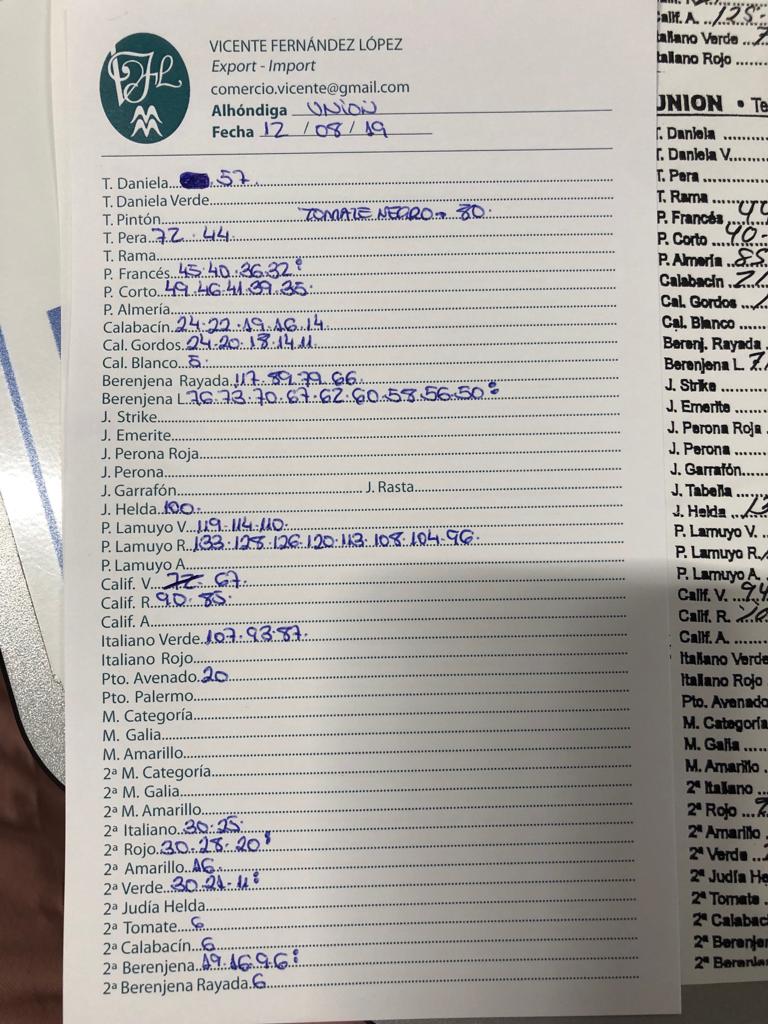 VICENTE FERNÁNDEZ LÓPEZ
Export - Import
comercio.vicente@gmail.com
Alhóndiga UNION
Fecha 12 / 08 / 19
T. Daniela 57.
T. Daniela Verde
T. Pintón TOMATE NEGRO → 80.
T. Pera 72 . 44.
T. Rama
P. Francés 45.40.36.32:
P. Corto 49.46.41.39.35.
P. Almería
Calabacín 24.22.19.16.14
Cal. Gordos 24.20.18.14.11
Cal. Blanco 5.
Berenjena Rayada 117.89.79.66.
Berenjena L. 76.73.70.67.62.60.58.56.50:
J. Strike
J. Emerite
J. Perona Roja
J. Perona
J. Garrafón J. Rasta
J. Helda 100.
P. Lamuyo V. 119.114.110.
P. Lamuyo R. 133.128.126.120.113.108.104.96.
P. Lamuyo A.
Calif. V. 67.
Calif. R. 90.85.
Calif. A.
Italiano Verde 107.93.87.
Italiano Rojo
Pto. Avenado 20
Pto. Palermo
M. Categoría
M. Galia
M. Amarillo
2ª M. Categoría
2ª M. Galia
2ª M. Amarillo
2ª Italiano 30.25.
2ª Rojo 30.28.20:
2ª Amarillo 16.
2ª Verde 30.21.11:
2ª Judía Helda
2ª Tomate 6
2ª Calabacín 6
2ª Berenjena 19.16.9.6:
2ª Berenjena Rayada 6
alif. A. 125-
aliano Verde
taliano Rojo
UNION • Te
T. Daniela
T. Daniela V.
T. Pera
T. Rama
P. Francés
P. Corto 40-
P. Almería 85
Calabacín
Cal. Gordos
Cal. Blanco
Berenj. Rayada
Berenjena L.
J. Strike
J. Emerite
J. Perona Roja
J. Perona
J. Garrafón
J. Tabella
J. Helda
P. Lamuyo V.
P. Lamuyo R.
P. Lamuyo A.
Calif. V. 94
Calif. R.
Calif. A.
Italiano Verde
Italiano Rojo
Pto. Avenado
M. Categoría
M. Galia
M. Amarillo
2ª Italiano
2ª Rojo
2ª Amarillo
2ª Verde
2ª Judía He
2ª Tomate
2ª Calabac
2ª Berenjen
2ª Berenjen